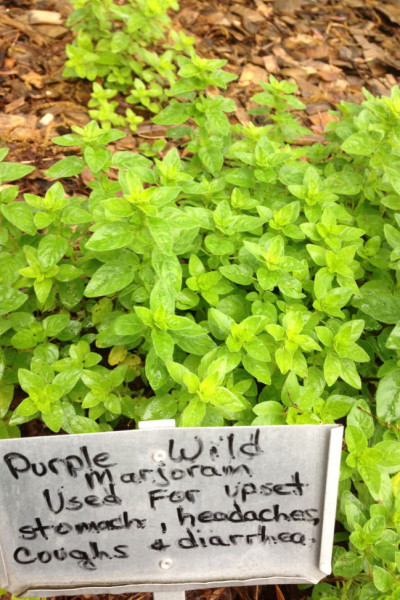 Purple Wild
Marjoram
Used For upset
stomach, headaches,
Coughs & diarrhea.